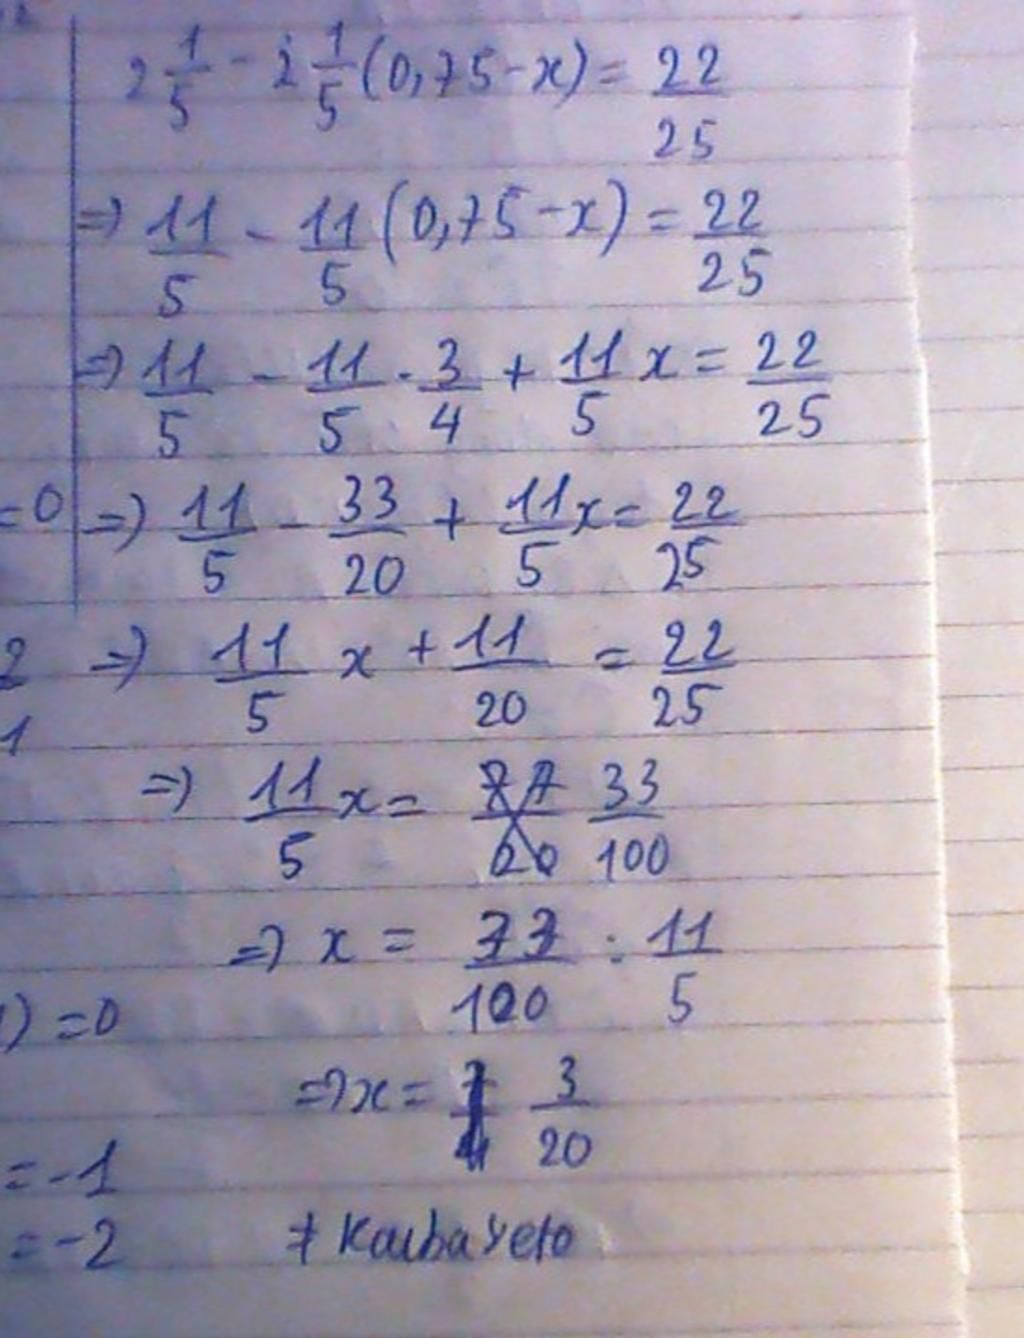 2 1/5 - 2 1/5 (0,75 - x) = 22/25
=> 11/5 - 11/5 (0,75 - x) = 22/25
=> 11/5 - 11/5 . 3/4 + 11/5 x = 22/25
=0 => 11/5 - 33/20 + 11/5 x = 22/25
2 => 11/5 x + 11/20 = 22/25
1
=> 11/5 x = 33/100
=> x = 33/100 : 11/5
) = 0
=> x = 3/20
= -1
= -2 ≠ KaitoaYeto